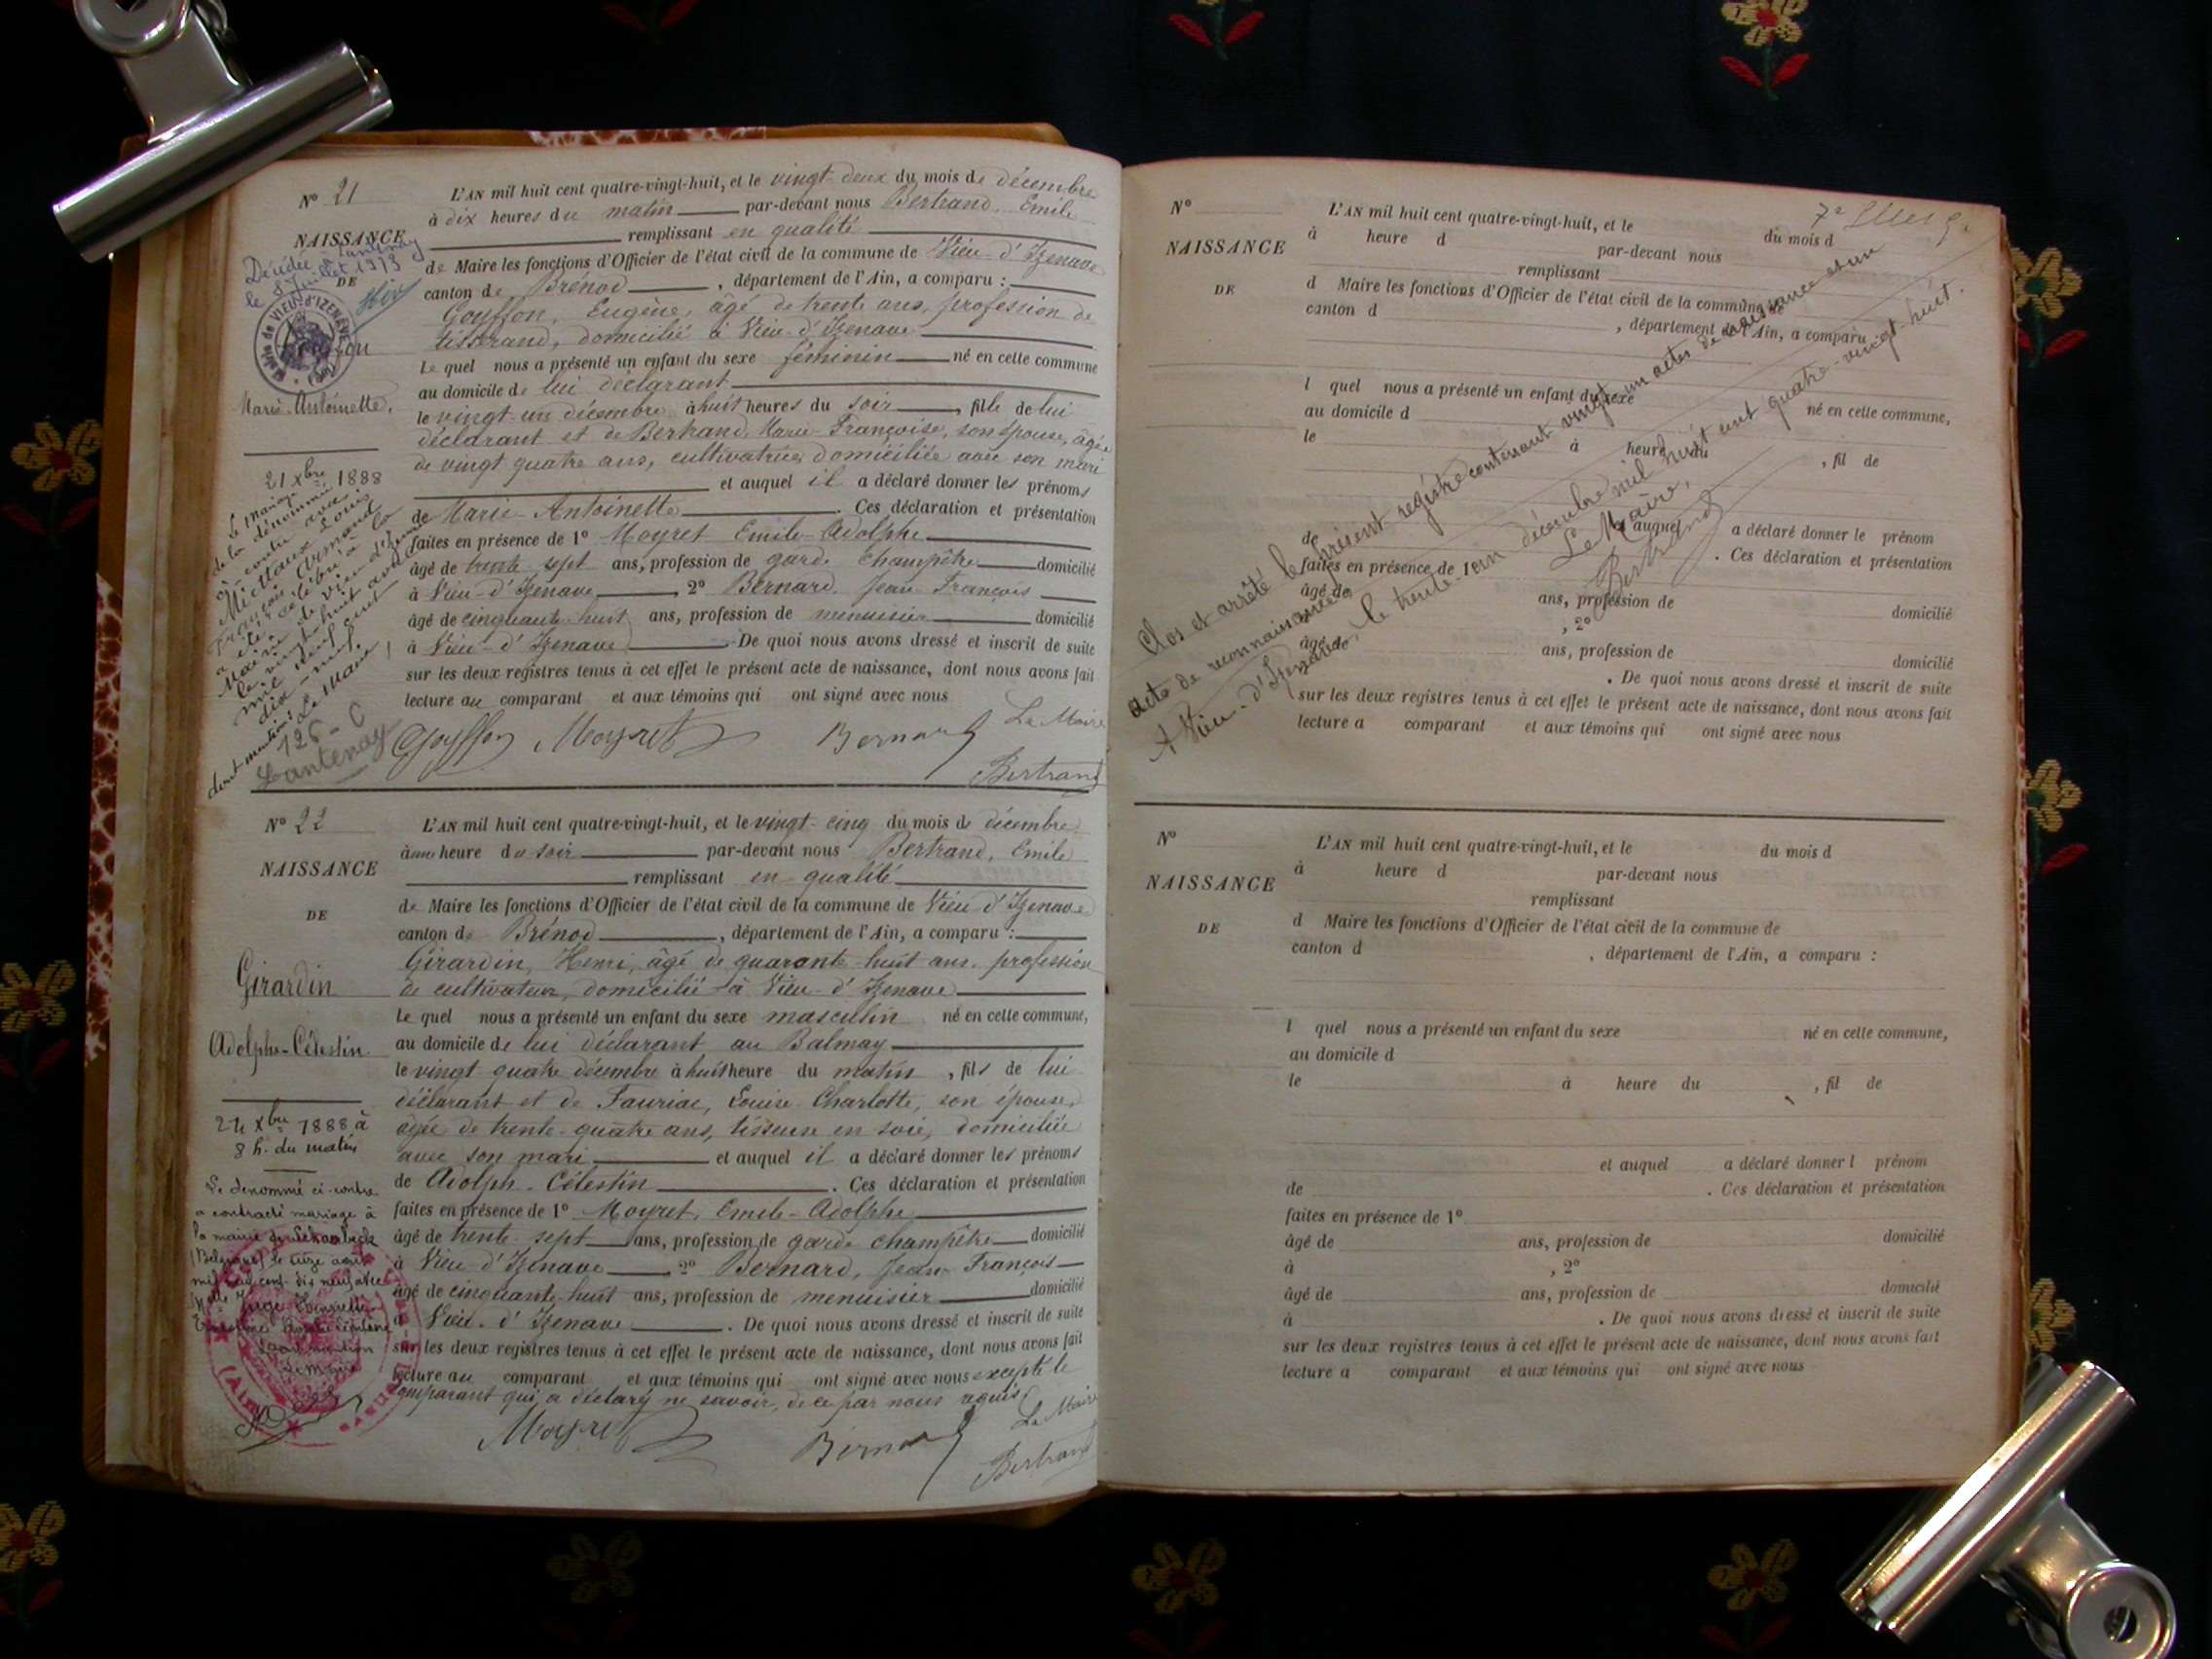 N° 21
NAISSANCE
Décédée à Lantenay
le 8 Juillet 1973
DE
Mairie de VIEU-D'IZENAVE
Marie-Antoinette.
21 Xbre 1888
Le mariage
de la dénommée
ci-contre avec
Michaux Louis
François Armand
a été célébré à la
Mairie de Vieu d'Izenave
le vingt-huit avril
mil neuf cent
dix-neuf.
dont mention: Le Maire
126-C
Lantenay
L'AN mil huit cent quatre-vingt-huit, et le vingt-deux du mois de décembre
à dix heures du matin par-devant nous Bertrand, Emile
remplissant en qualité
de Maire les fonctions d'Officier de l'état civil de la commune de Vieu-d'Izenave
canton de Brénod, département de l'Ain, a comparu :
Goyffon, Eugène, âgé de trente ans, profession de
tisserand, domicilié à Vieu-d'Izenave
Le quel nous a présenté un enfant du sexe féminin né en cette commune
au domicile de lui déclarant
le vingt-un décembre à huit heures du soir, fille de lui
déclarant et de Bertrand, Marie-Françoise, son épouse, âgée
de vingt quatre ans, cultivatrice, domiciliée avec son mari
et auquel il a déclaré donner les prénoms
de Marie-Antoinette. Ces déclaration et présentation
faites en présence de 1° Moyret Emile-Adolphe
âgé de trente-sept ans, profession de garde champêtre domicilié
à Vieu-d'Izenave, 2° Bernard, Jean-François
âgé de cinquante-huit ans, profession de menuisier domicilié
à Vieu-d'Izenave. De quoi nous avons dressé et inscrit de suite
sur les deux registres tenus à cet effet le présent acte de naissance, dont nous avons fait
lecture au comparant et aux témoins qui ont signé avec nous
Le Maire
Goyffon Moyret Bernard
Bertrand
N° 22
NAISSANCE
DE
Girardin
Adolphe-Célestin.
24 Xbre 1888 à
8 h. du matin
Le dénommé ci-contre
a contracté mariage à
la mairie de Schaerbeck
(Belgique) le
mil neuf cent dix neuf avec
Le Maire
L'AN mil huit cent quatre-vingt-huit, et le vingt-cinq du mois de décembre
à une heure du soir par-devant nous Bertrand, Emile
remplissant en qualité
de Maire les fonctions d'Officier de l'état civil de la commune de Vieu-d'Izenave
canton de Brénod, département de l'Ain, a comparu :
Girardin, Henri, âgé de quarante-huit ans, profession
de cultivateur, domicilié à Vieu-d'Izenave
Le quel nous a présenté un enfant du sexe masculin né en cette commune,
au domicile de lui déclarant au Balmay
le vingt-quatre décembre à huit heure du matin, fils de lui
déclarant et de Fauriac, Louise-Charlotte, son épouse,
âgée de trente-quatre ans, tisseuse en soie, domiciliée
avec son mari et auquel il a déclaré donner les prénoms
de Adolph-Célestin. Ces déclaration et présentation
faites en présence de 1° Moyret, Emile-Adolphe
âgé de trente-sept ans, profession de garde champêtre domicilié
à Vieu d'Izenave 2° Bernard, Jean-François
âgé de cinquante-huit ans, profession de menuisier domicilié
à Vieu-d'Izenave. De quoi nous avons dressé et inscrit de suite
sur les deux registres tenus à cet effet le présent acte de naissance, dont nous avons fait
lecture au comparant et aux témoins qui ont signé avec nous excepté le
comparant qui a déclaré ne savoir, de ce par nous requis
Le Maire
Moyret Bernard
Bertrand
N°
NAISSANCE
DE
L'AN mil huit cent quatre-vingt-huit, et le du mois d
à heure d par-devant nous
remplissant
d Maire les fonctions d'Officier de l'état civil de la commune de
canton d , département de l'Ain, a comparu
l quel nous a présenté un enfant du sexe né en cette commune,
au domicile d
le à heure du , fil de
et auquel a déclaré donner le prénom
de . Ces déclaration et présentation
faites en présence de 1°
âgé de ans, profession de domicilié
, 2°
âgé de ans, profession de domicilié
. De quoi nous avons dressé et inscrit de suite
sur les deux registres tenus à cet effet le présent acte de naissance, dont nous avons fait
lecture a comparant et aux témoins qui ont signé avec nous
Clos et arrêté le présent registre contenant vingt-un actes de naissance et un
acte de reconnaissance
A Vieu-d'Izenave, le trente-un décembre mil huit cent quatre-vingt-huit.
Le Maire,
Bertrand
N°
NAISSANCE
DE
L'AN mil huit cent quatre-vingt-huit, et le du mois d
à heure d par-devant nous
remplissant
d Maire les fonctions d'Officier de l'état civil de la commune de
canton d , département de l'Ain, a comparu :
l quel nous a présenté un enfant du sexe né en cette commune,
au domicile d
le à heure du , fil de
et auquel a déclaré donner l prénom
de . Ces déclaration et présentation
faites en présence de 1°
âgé de ans, profession de domicilié
à , 2°
âgé de ans, profession de domicilié
à . De quoi nous avons dressé et inscrit de suite
sur les deux registres tenus à cet effet le présent acte de naissance, dont nous avons fait
lecture a comparant et aux témoins qui ont signé avec nous